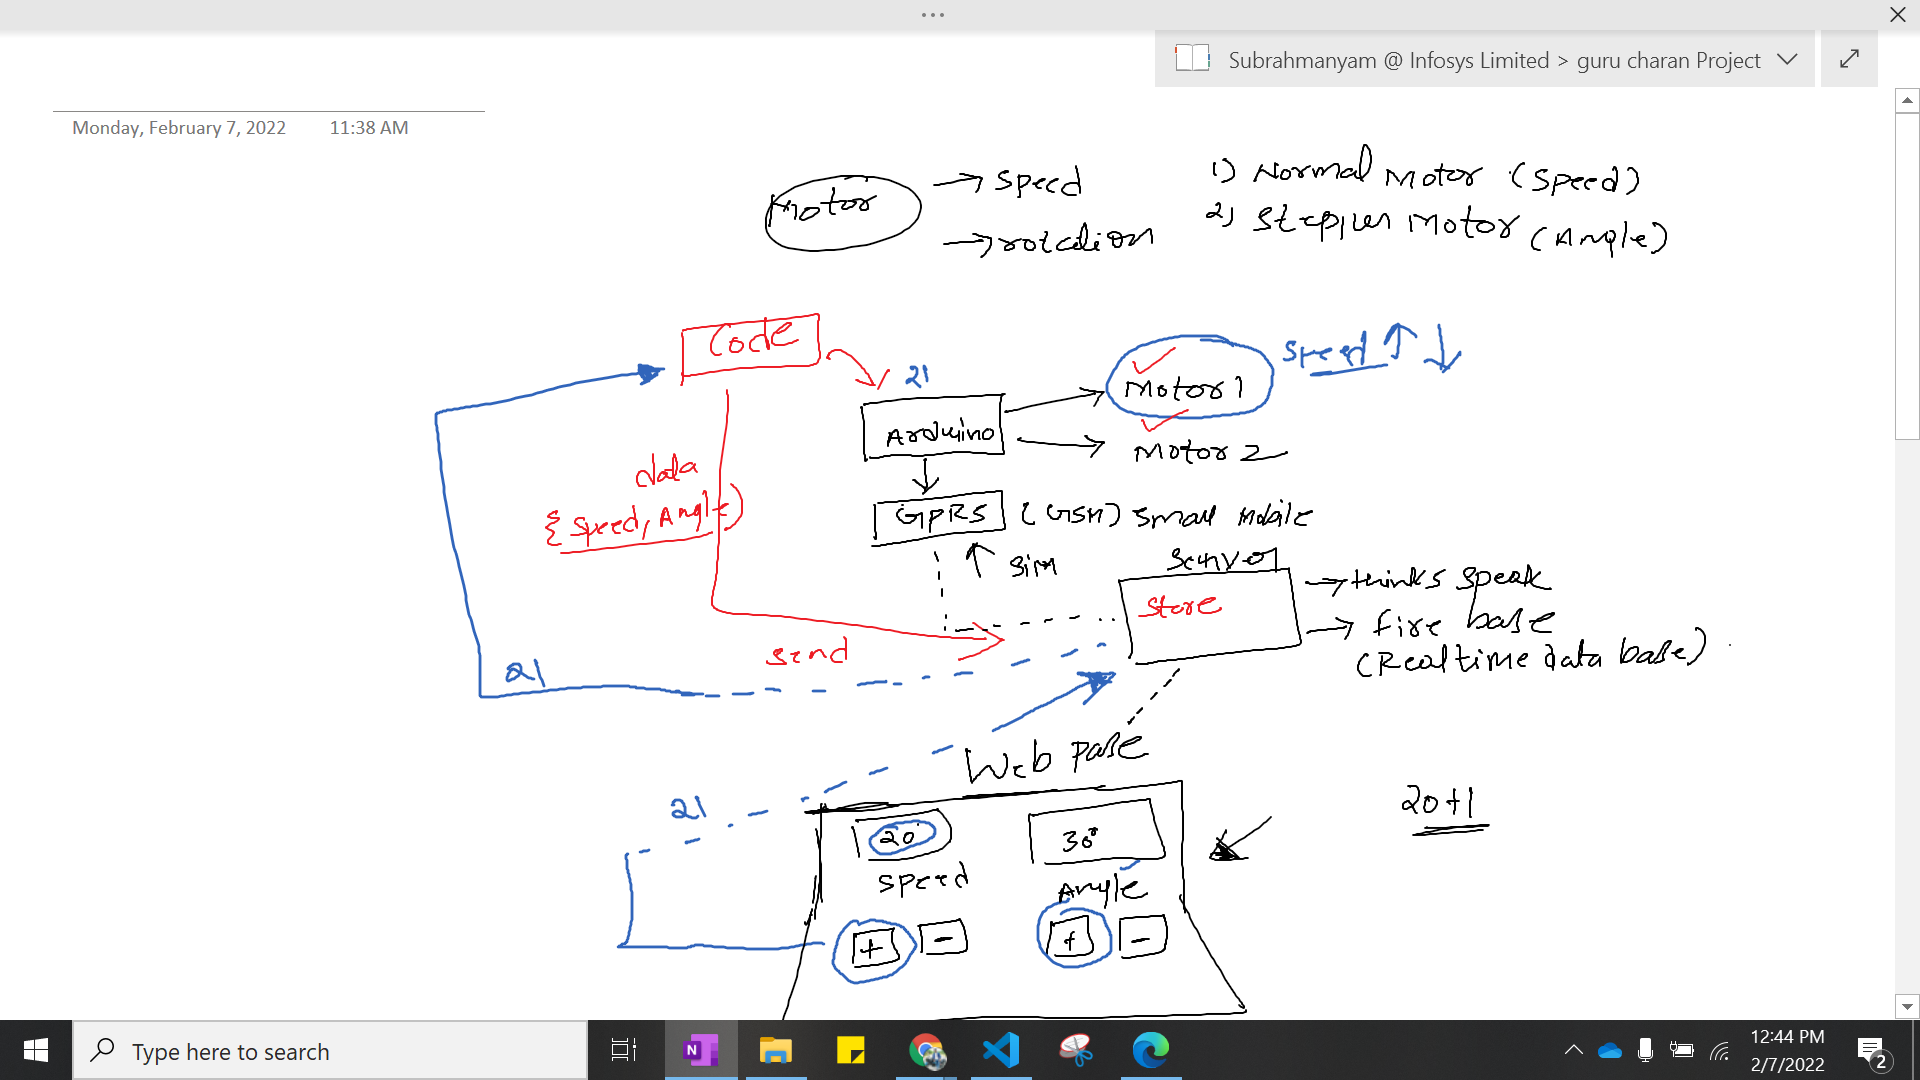 Subrahmanyam @ Infosys Limited > guru charan Project
Monday, February 7, 2022 11:38 AM
Motor
→ speed
→ rotation
1) Normal Motor (speed)
2) Stepper Motor (Angle)
Code
21
Arduino
Motor 1
speed ↑ ↓
Motor 2
data
{speed, Angle}
GPRS
(GSM) small mobile
sim
server
store
→ thinks speak
→ fire base
(Realtime data base)
send
21
Web page
21
20
30°
20+1
speed
Angle
+ -
+ -
Type here to search
12:44 PM
2/7/2022
2